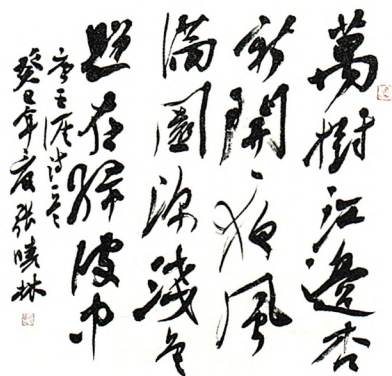 萬樹江邊杏
新開一夜風
滿園深淺色
照在綠波中
唐王涯诗一首
癸巳年夏張曉林